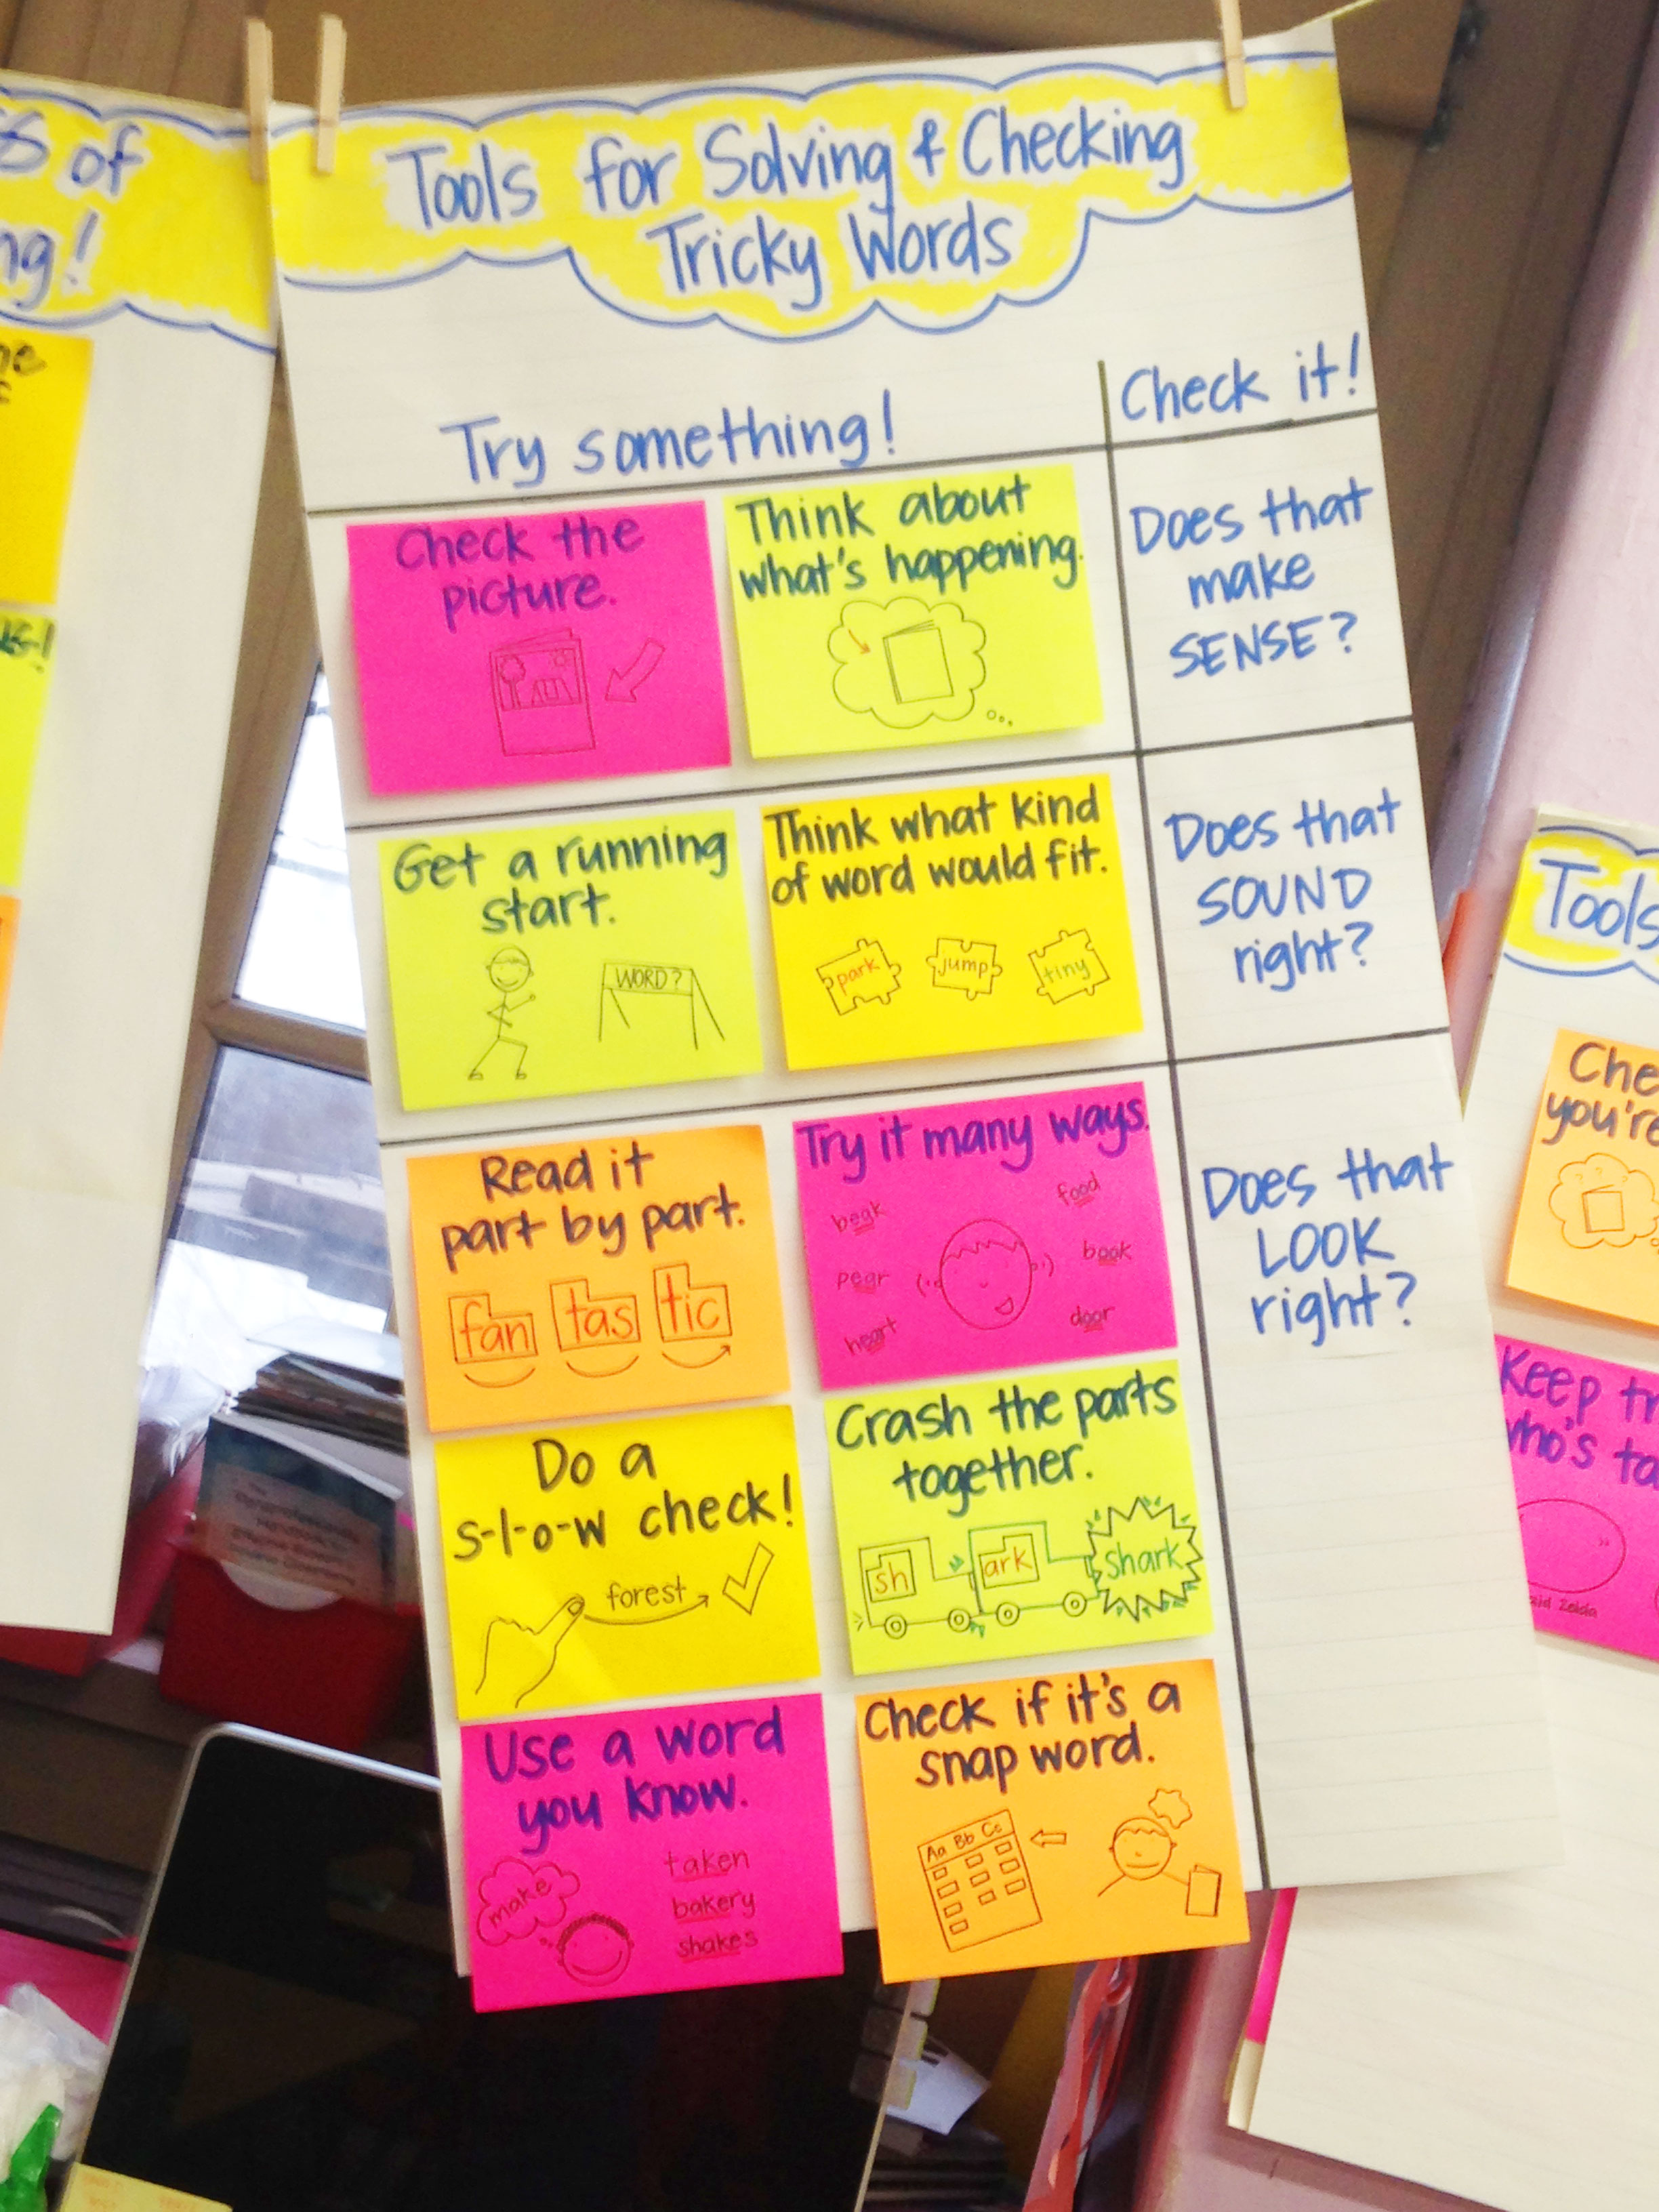 Tools for Solving & Checking
Tricky Words
Try something!
Check it!
Check the
picture.
Think about
what's happening.
Does that
make
SENSE?
Get a running
start.
WORD?
Think what kind
of word would fit.
park jump tiny
Does that
SOUND
right?
Read it
part by part.
fan tas tic
Try it many ways.
beak
pear
heart
food
book
door
Does that
LOOK
right?
Do a
s-l-o-w check!
forest
Crash the parts
together.
sh ark shark
Use a word
you know.
make
taken
bakery
shakes
Check if it's a
snap word.
Aa Bb Cc
of
Tools
you're
Keep
who's
Zelda